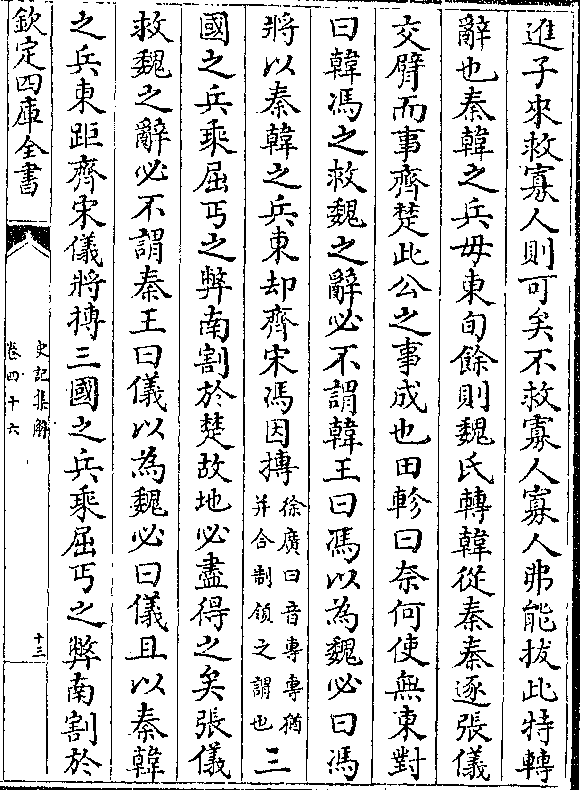 進子來救寡人則可矣不救寡人寡人弗能拔此特轉
辭也秦韓之兵毋東旬餘則魏氏轉韓從秦秦逐張儀
交臂而事齊楚此公之事成也田軫曰奈何使無東對
曰韓馮之救魏之辭必不謂韓王曰馮以為魏必曰馮
將以秦韓之兵東却齊宋馮因摶徐廣曰音專專猶并合制領之謂也三
國之兵乘屈丐之弊南割於楚故地必盡得之矣張儀
救魏之辭必不謂秦王曰儀以為魏必曰儀且以秦韓
之兵東距齊宋儀將摶三國之兵乘屈丐之弊南割於
欽定四庫全書
史記集解
卷四十六
十三